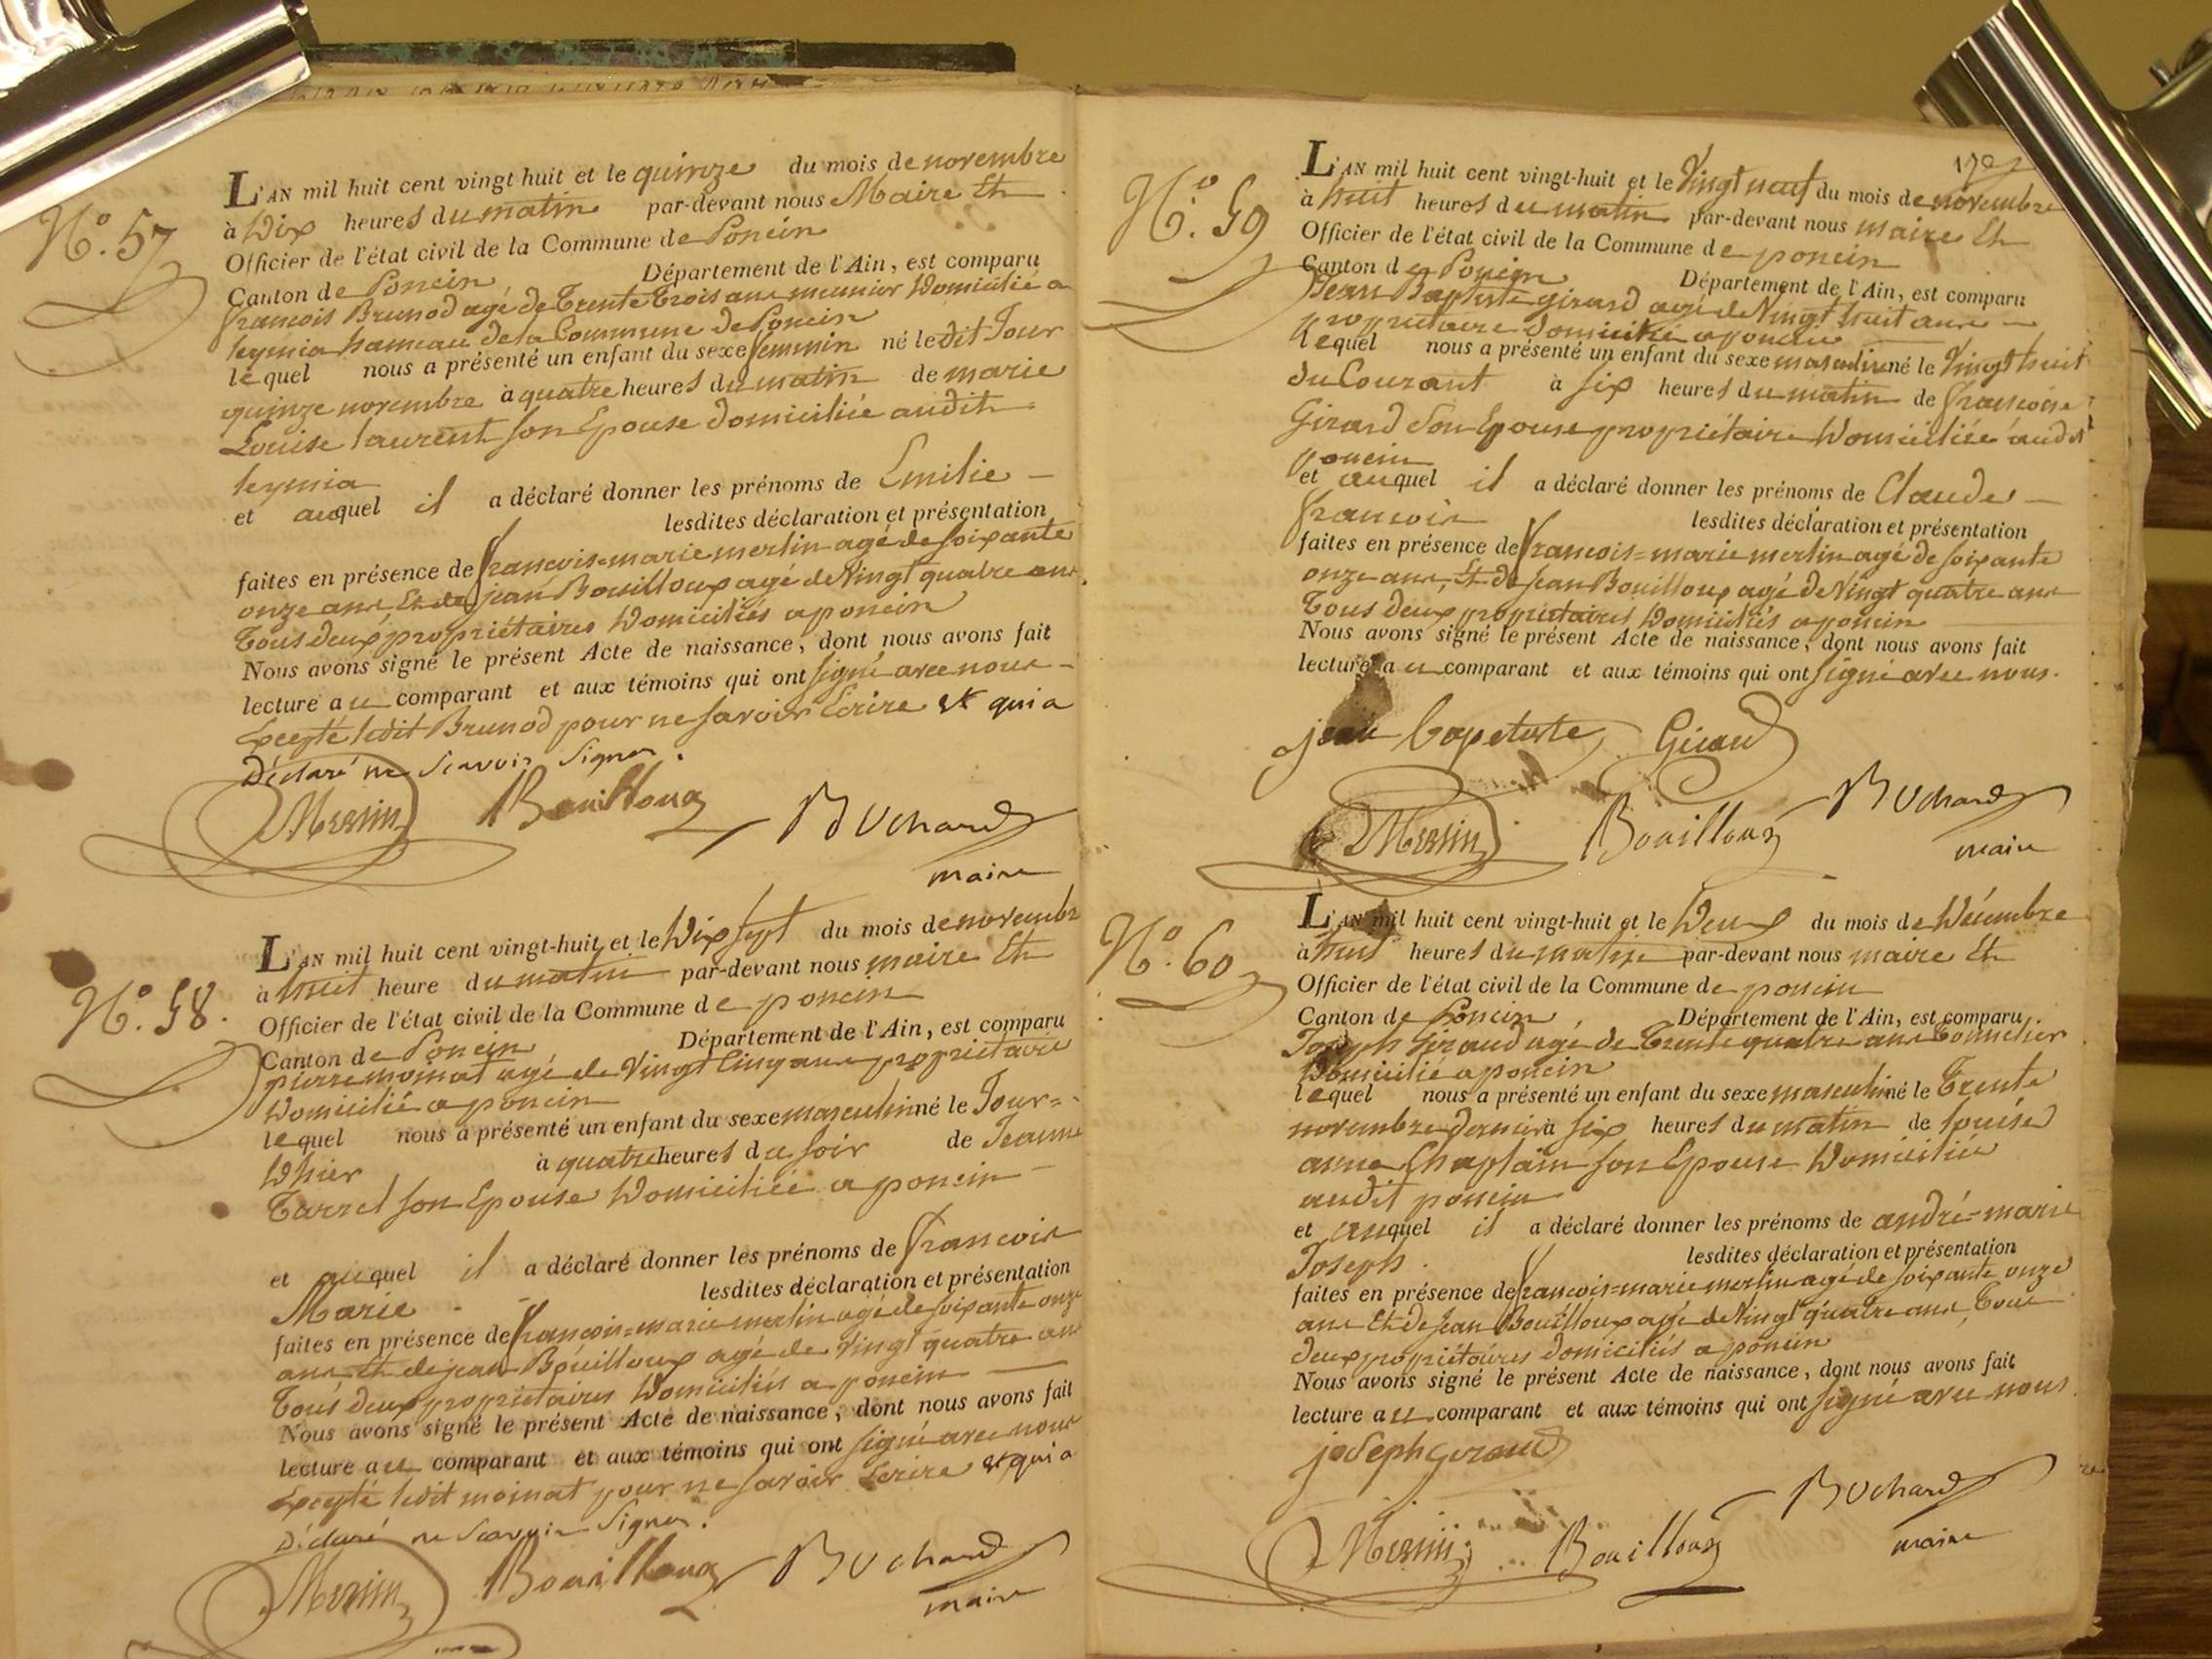 N.° 57
L'AN mil huit cent vingt huit et le quinze du mois de novembre
à Dix heures du matin par-devant nous Maire Et
Officier de l'état civil de la Commune de Poncin
Canton de Poncin Département de l'Ain, est comparu
francois Brunod agé de Trente Trois ans meunier Domicilié a
leymia hameau de la Commune de Poncin
lequel nous a présenté un enfant du sexe feminin né ledit Jour
quinze novembre à quatre heures du matin de marie
Louise laurent son Epouse domiciliée audit
leymia
et auquel il a déclaré donner les prénoms de Emilie
lesdites déclaration et présentation
faites en présence de francois=marie merlin agé de soixante
onze ans, Et de jean Bouilloux agé de Vingt quatre ans
Tous deux propriétaires Domiciliés a poncin
Nous avons signé le présent Acte de naissance, dont nous avons fait
lecture au comparant et aux témoins qui ont signé avec nous
Excepté ledit Brunod pour ne savoir Ecrire et qui a
Déclaré ne Scavoir Signer.
Merlin Bouilloux Buchard
maire
N.° 58.
L'AN mil huit cent vingt-huit et le Dix sept du mois de novembre
a huit heure du matin par-devant nous maire Et
Officier de l'état civil de la Commune de poncin
Canton de Poncin Département de l'Ain, est comparu
pierre moinat agé de Vingt Cinq ans propriétaire
Domicilié a poncin
lequel nous a présenté un enfant du sexe masculin né le Jour=
D'hier à quatre heures du soir de Jeanne
Tarrel son Epouse Domiciliée a poncin
et auquel il a déclaré donner les prénoms de francois
Marie lesdites déclaration et présentation
faites en présence de francois=marie merlin agé de soixante onze
ans, Et de jean Bouilloux agé de Vingt quatre ans
Tous deux propriétaires Domiciliés a poncin
Nous avons signé le présent Acte de naissance, dont nous avons fait
lecture au comparant et aux témoins qui ont signé avec nous
Excepté ledit moinat pour ne savoir Ecrire et qui a
Déclaré ne Scavoir Signer.
Merlin Bouilloux Buchard
maire
N.° 59
L'AN mil huit cent vingt-huit et le Vingt neuf du mois de novembre
à huit heures du matin par-devant nous maire Et
Officier de l'état civil de la Commune de poncin
Canton de Poncin Département de l'Ain, est comparu
Jean Baptiste girard agé de Vingt huit ans
propriétaire domicilié a poncin
lequel nous a présenté un enfant du sexe masculin né le Vingt huit
du Courant à six heures du matin de francoise
Girard Son Epouse propriétaire Domiciliée audit
poncin
et auquel il a déclaré donner les prénoms de Claude
francois lesdites déclaration et présentation
faites en présence de francois=marie merlin agé de soixante
onze ans, Et de jean Bouilloux agé de Vingt quatre ans
Tous deux propriétaires Domiciliés a poncin
Nous avons signé le présent Acte de naissance, dont nous avons fait
lecture au comparant et aux témoins qui ont signé avec nous.
jean bapetiste Girard
Merlin Bouilloux Buchard
maire
N.° 60
L'AN mil huit cent vingt-huit et le Deux du mois de Décembre
à huit heures du matin par-devant nous maire Et
Officier de l'état civil de la Commune de poncin
Canton de Poncin Département de l'Ain, est comparu
Joseph Giraud agé de Trente quatre ans Tonnelier
Domicilié a poncin
lequel nous a présenté un enfant du sexe masculin né le Trente
novembre dernier à six heures du matin de louise
anne Chaplain son Epouse Domiciliée
audit poncin
et auquel il a déclaré donner les prénoms de andré=marie
Joseph. lesdites déclaration et présentation
faites en présence de francois=marie merlin agé de soixante onze
ans Et de Jean Bouilloux agé de Vingt quatre ans, Tous
deux propriétaires domiciliés a poncin
Nous avons signé le présent Acte de naissance, dont nous avons fait
lecture au comparant et aux témoins qui ont signé avec nous
joseph Geraud
Merlin Bouilloux Buchard
maire